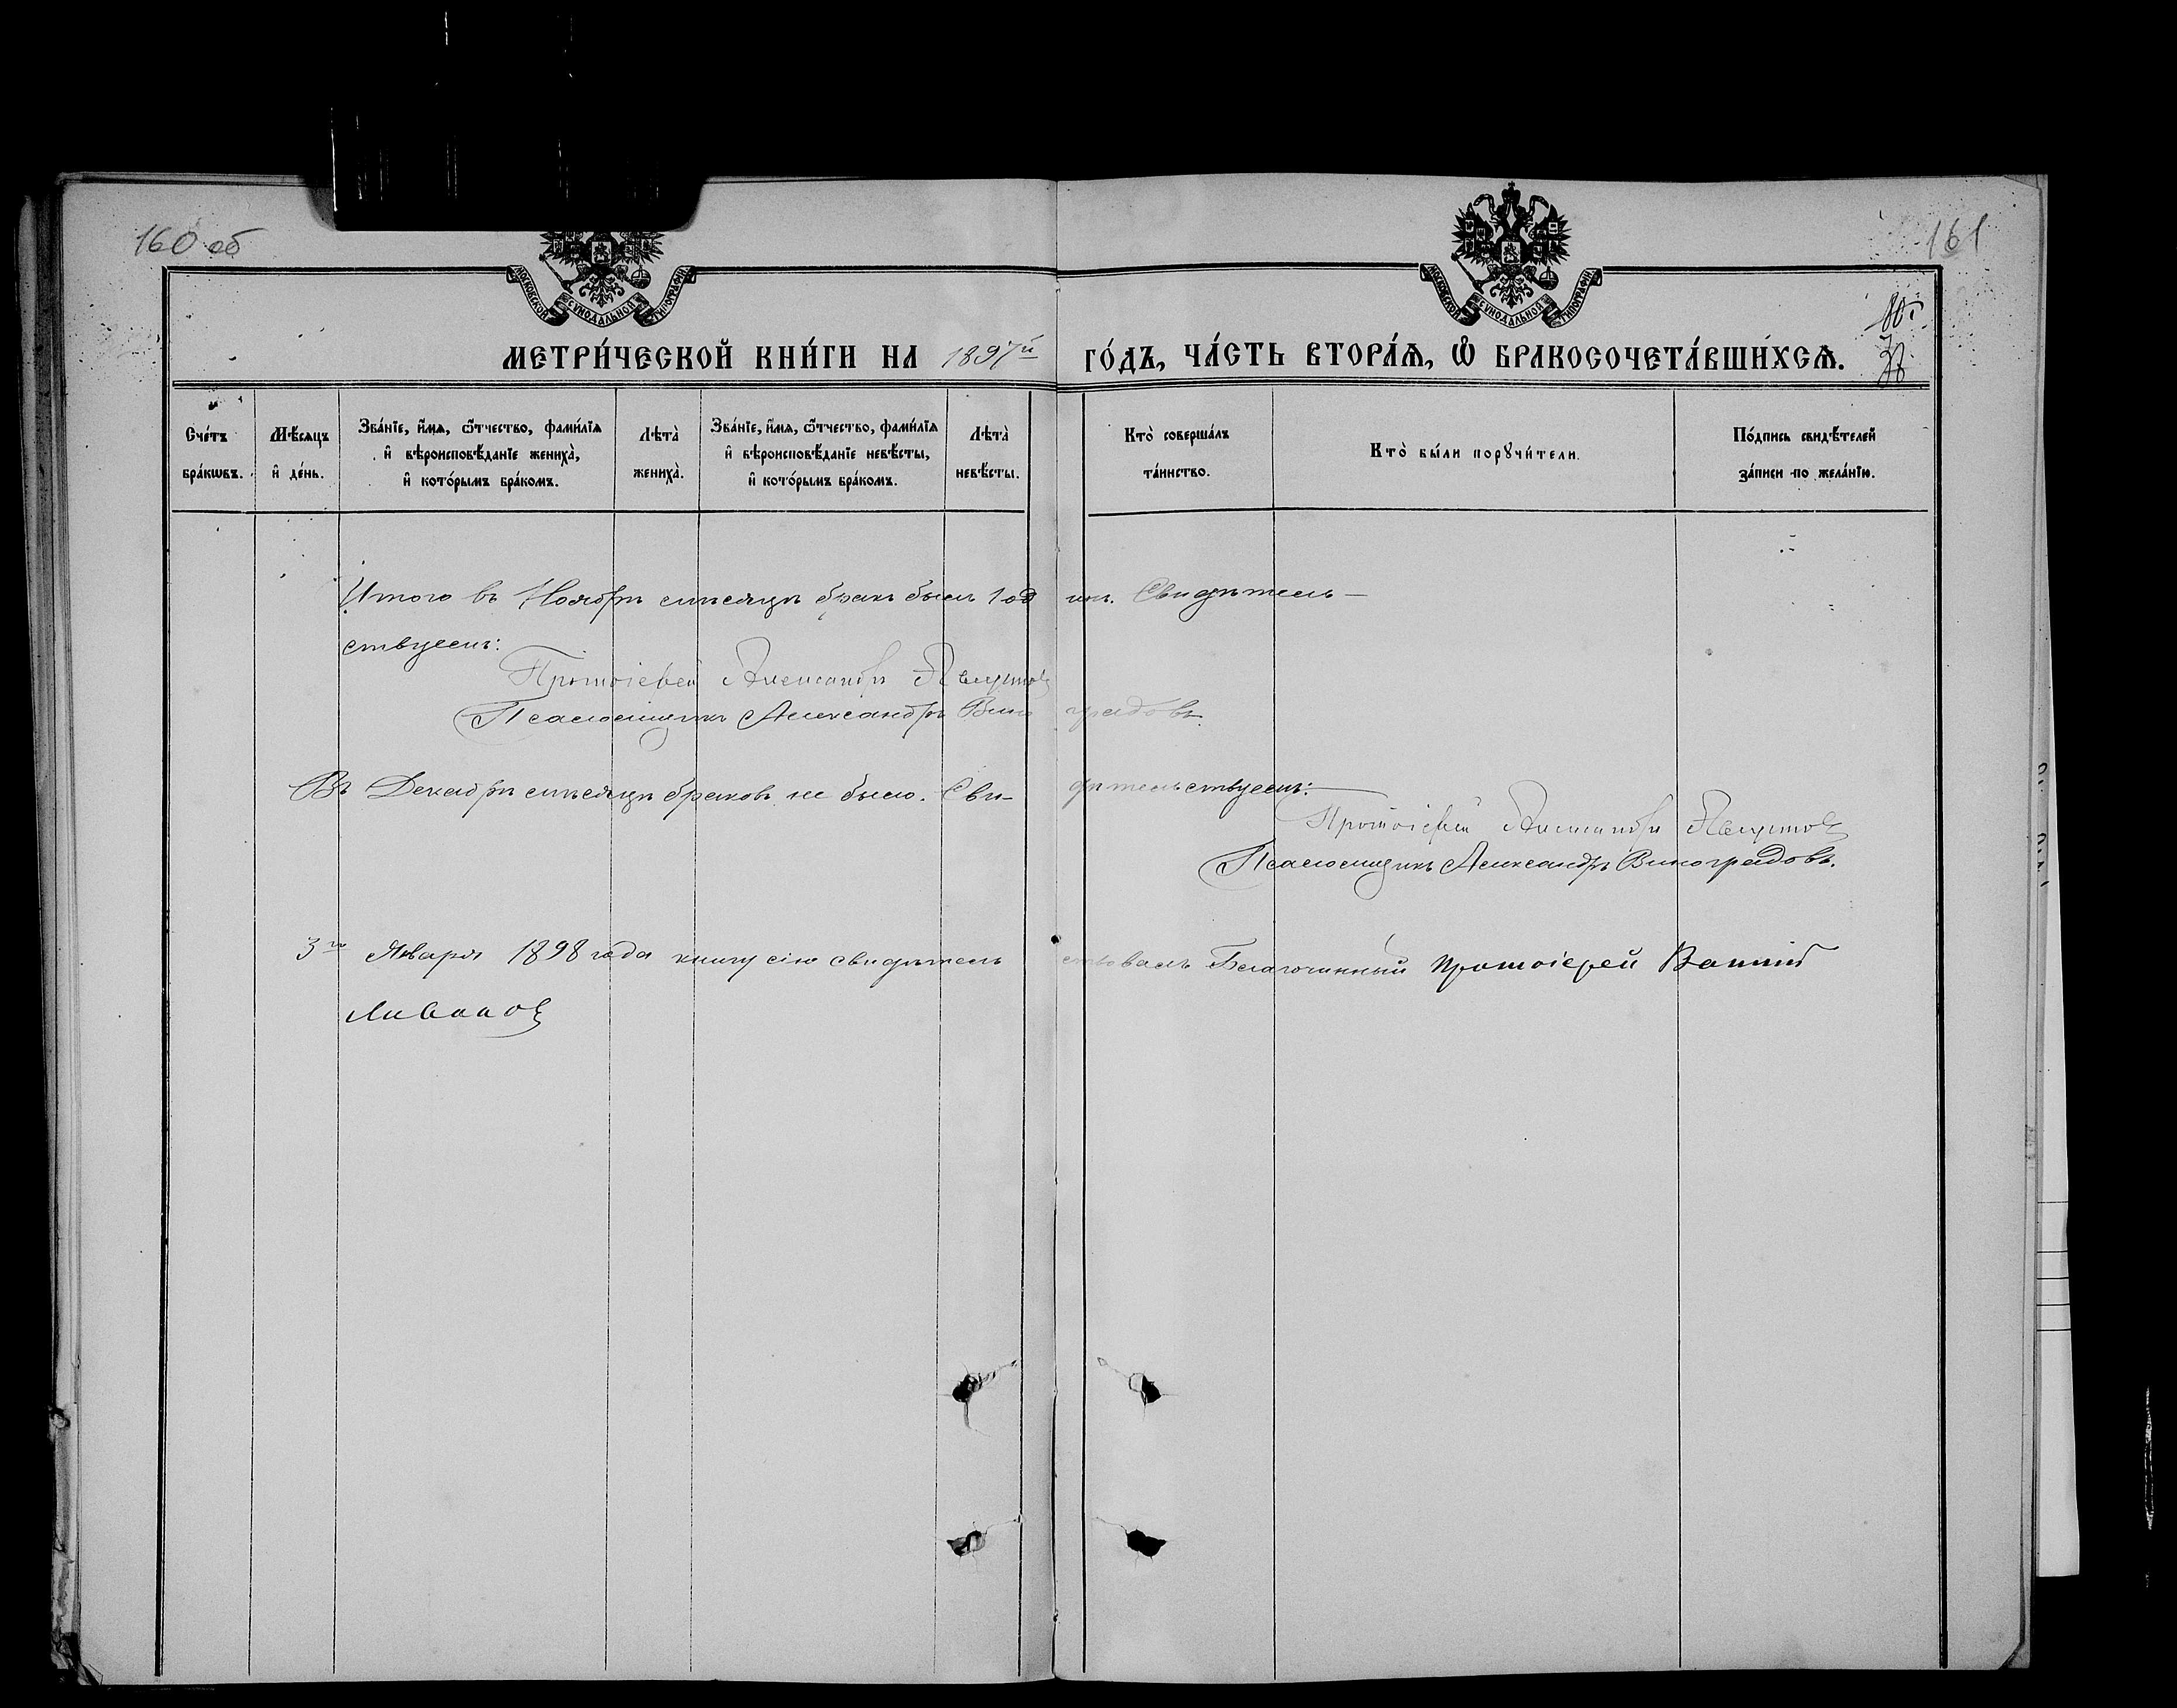 160 об
161
МОСКОВСКОЙ СѴНОДАЛЬНОЙ ТИПОГРАФІИ
МОСКОВСКОЙ СѴНОДАЛЬНОЙ ТИПОГРАФІИ
МЕТРИ́ЧЕСКОЙ КНИ́ГИ НА 1897й ГО́ДЪ, ЧА́СТЬ ВТОРА́Ѧ, Ѽ БРАКОСОЧЕТА́ВШИ́ХСѦ.
Сче́тъ
бра́кѡвъ.
Мѣ́сяцъ
и҆ де́нь.
Зва́нїе, и҆́мя, ѻ҆́тчество, фами́лїя
и҆ вѣроисповѣ́данїе жениха̀,
и҆ кото́рымъ бра́комъ.
Лѣта̀
жениха̀.
Зва́нїе, и҆́мя, ѻ҆́тчество, фами́лїя
и҆ вѣроисповѣ́данїе невѣ́сты,
и҆ кото́рымъ бра́комъ.
Лѣта̀
невѣ́сты.
Кто̀ соверша́лъ
та́инство.
Кто̀ бы́ли порꙋчи́тели.
По́дпись свидѣ́телей
за́писи по жела́нїю.
Итого въ Ноябрѣ мѣсяцѣ бракъ былъ 1 одинъ. Свидѣтель-
ствуемъ:
Протоіерей Александръ
Псаломщикъ Александръ Виноградовъ.
Въ Декабрѣ мѣсяцѣ браковъ не было. Свидѣтельствуемъ:
Протоіерей Александръ
Псаломщикъ Александръ Виноградовъ.
3го Января 1898 года книгу сію свидѣтельствовалъ Благочинный Протоіерей
Ливановъ